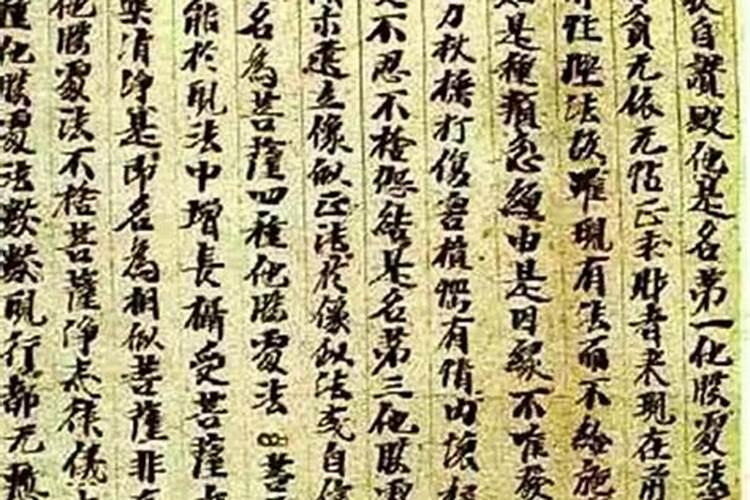 自讚毀他是名第一他勝處法
貧无依无怙正求財者來現在前
性慳法故雖現有法而不給施
是種類忿纏由是因緣不唯發
刀杖捶打傷害損惱有情內懷
不忍不捨怨結是名第三他勝處
示建立像似正法於像似法或自信
名為菩薩四種他勝處法菩
能於現法中增長攝受菩薩
樂清淨是即名為相似菩薩非
他勝處法不捨菩薩淨戒律儀
種他勝處法數數現行都无慚